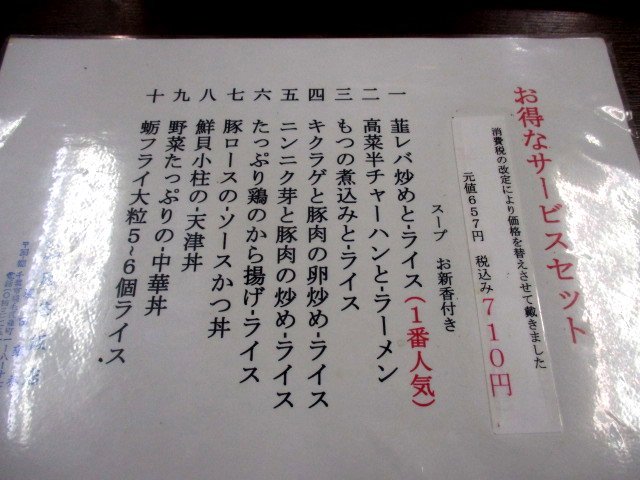 お得なサービスセット
消費税の改定により価格を替えさせて戴きました
元値657円 税込み710円
スープ お新香付き
一 韮レバ炒めと-ライス(1番人気)
二 高菜半チャーハンと-ラーメン
三 もつの煮込みと-ライス
四 キクラゲと豚肉の卵炒め-ライス
五 ニンニク芽と豚肉の炒め-ライス
六 たっぷり鶏のから揚げ-ライス
七 豚ロースの-ソースかつ丼
八 鮮貝小柱の-天津丼
九 野菜たっぷりの-中華丼
十 蛎フライ大粒5~6個ライス